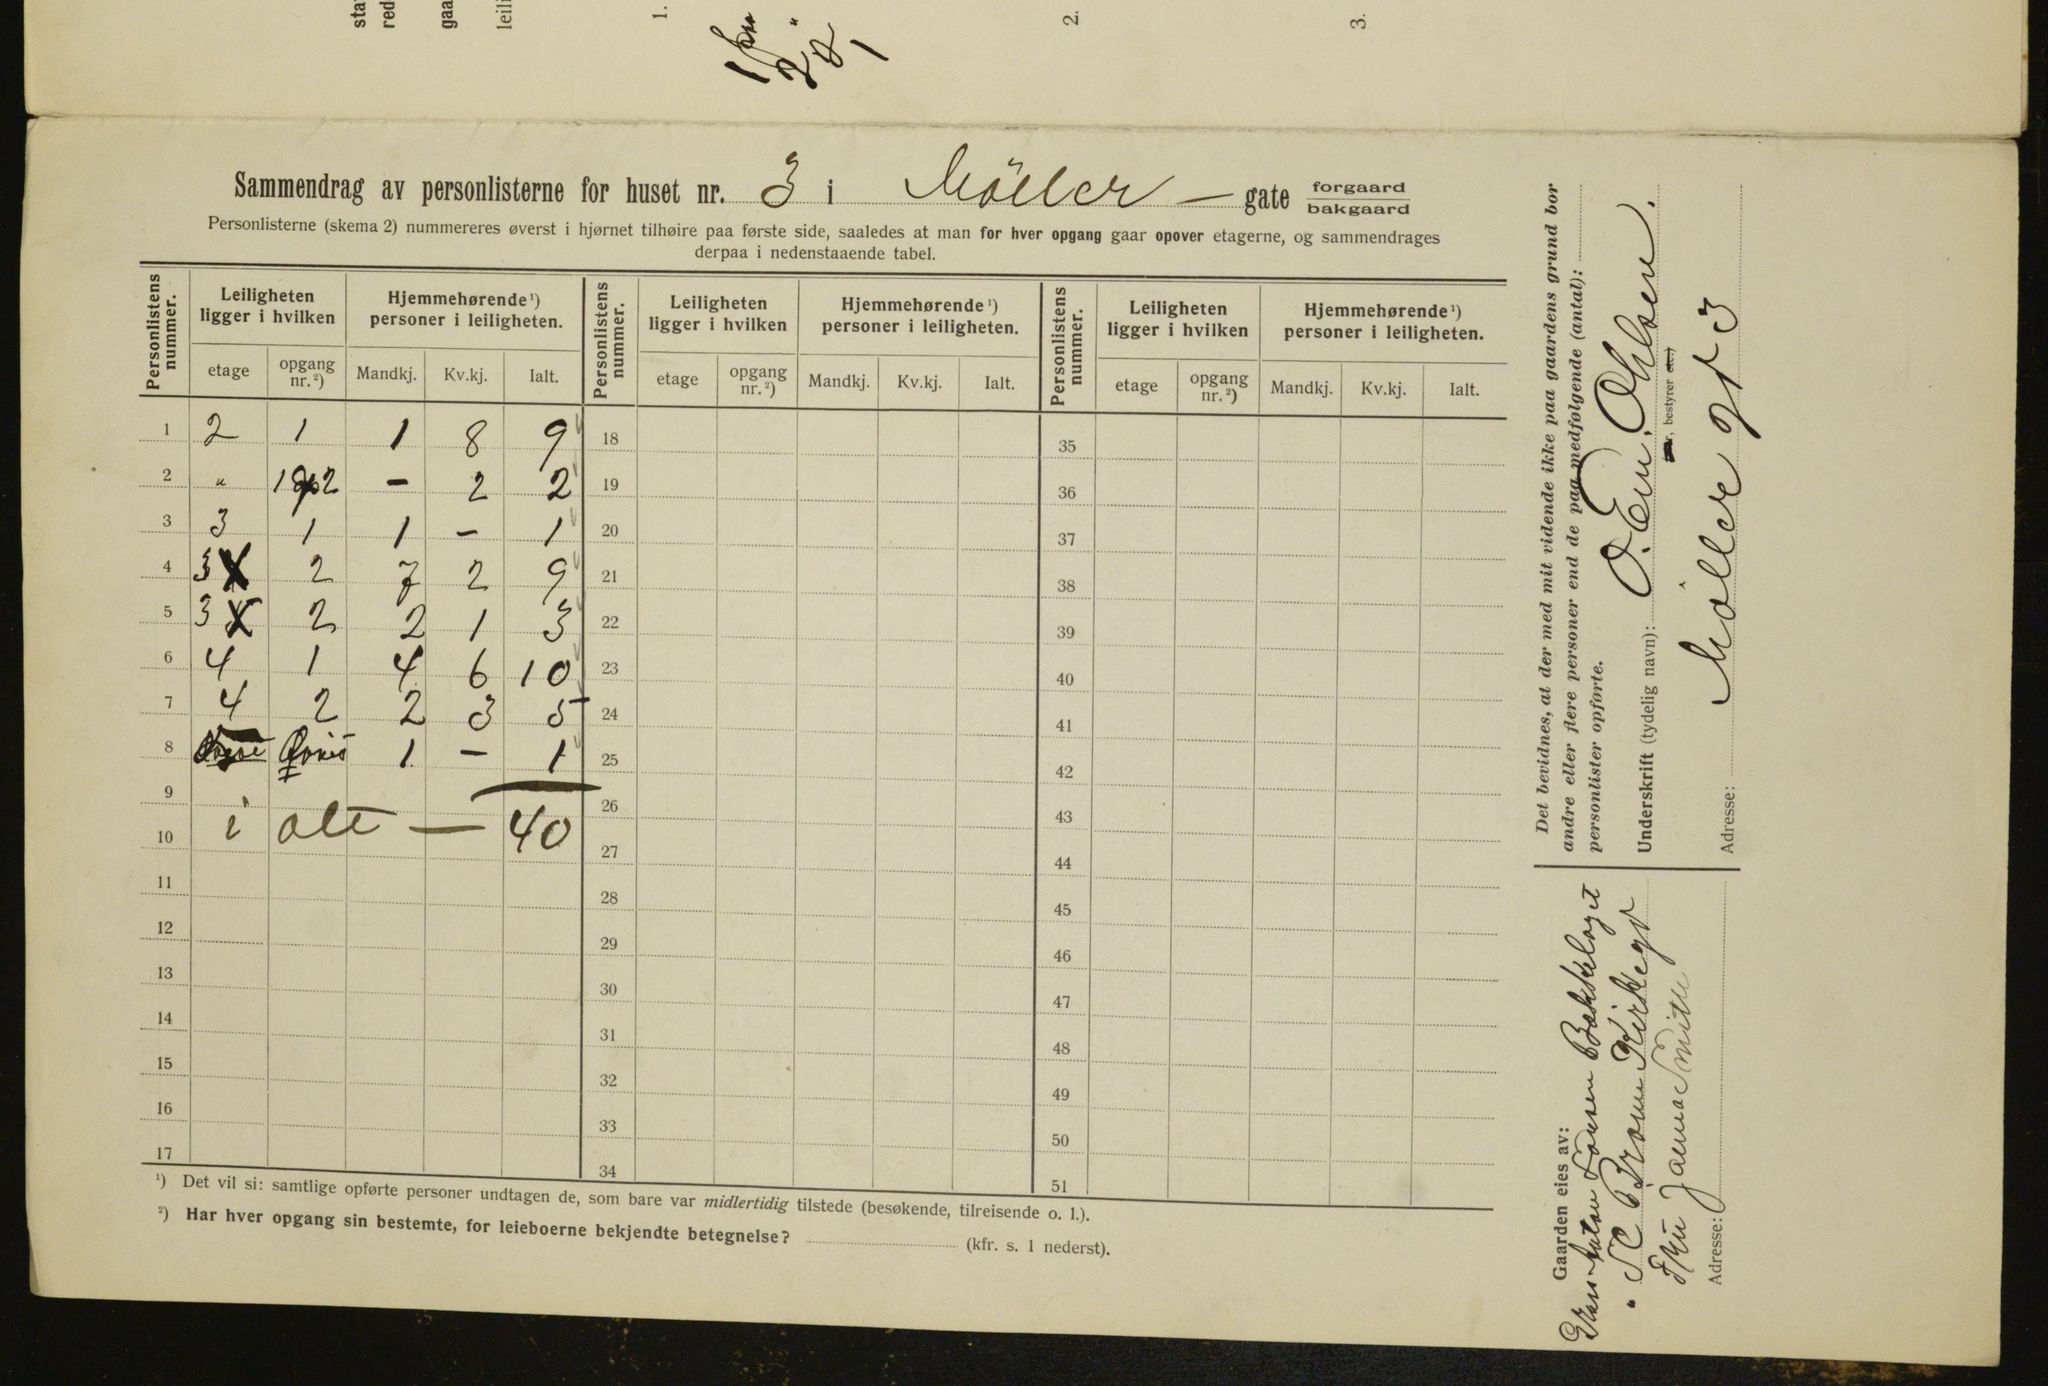 sta
red
gaa
leili
1.
2.
3.
Sammendrag av personlisterne for huset nr. 3 i Möller — gate forgaard
bakgaard
Personlisterne (skema 2) nummereres øverst i hjørnet tilhøire paa første side, saaledes at man for hver opgang gaar opover etagerne, og sammendrages
derpaa i nedenstaaende tabel.
Personlistens nummer. Leiligheten ligger i hvilken Hjemmehørende ¹) personer i leiligheten. Personlistens nummer. Leiligheten ligger i hvilken Hjemmehørende ¹) personer i leiligheten. Personlistens nummer. Leiligheten ligger i hvilken Hjemmehørende ¹) personer i leiligheten.
etage opgang nr. ²) Mandkj. Kv.kj. Ialt. etage opgang nr. ²) Mandkj. Kv.kj. Ialt. etage opgang nr. ²) Mandkj. Kv.kj. Ialt.
1 2 1 1 8 9 18 35
2 " 1 2 – 2 2 19 36
3 3 1 1 – 1 20 37
4 3 2 7 2 9 21 38
5 3 2 2 1 3 22 39
6 4 1 4 6 10 23 40
7 4 2 2 3 5 24 41
8 1 – 1 25 42
9 26 43
10 i alt — 40 27 44
11 28 45
12 29 46
13 30 47
14 31 48
15 32 49
16 33 50
17 34 51
¹) Det vil si: samtlige opførte personer undtagen de, som bare var midlertidig tilstede (besøkende, tilreisende o. l.).
²) Har hver opgang sin bestemte, for leieboerne bekjendte betegnelse? (kfr. s. 1 nederst).
Det bevidnes, at der med mit vidende ikke paa gaardens grund bor
andre eller flere personer end de paa medfølgende (antal):
personlister opførte.
Underskrift (tydelig navn): O. Em. Ohlsen.
, bestyrer etc.)
Adresse: Möller gt 3
Gaarden eies av:
Anton Larsen
" Kirkegt
Fru Janna Smith
Adresse: